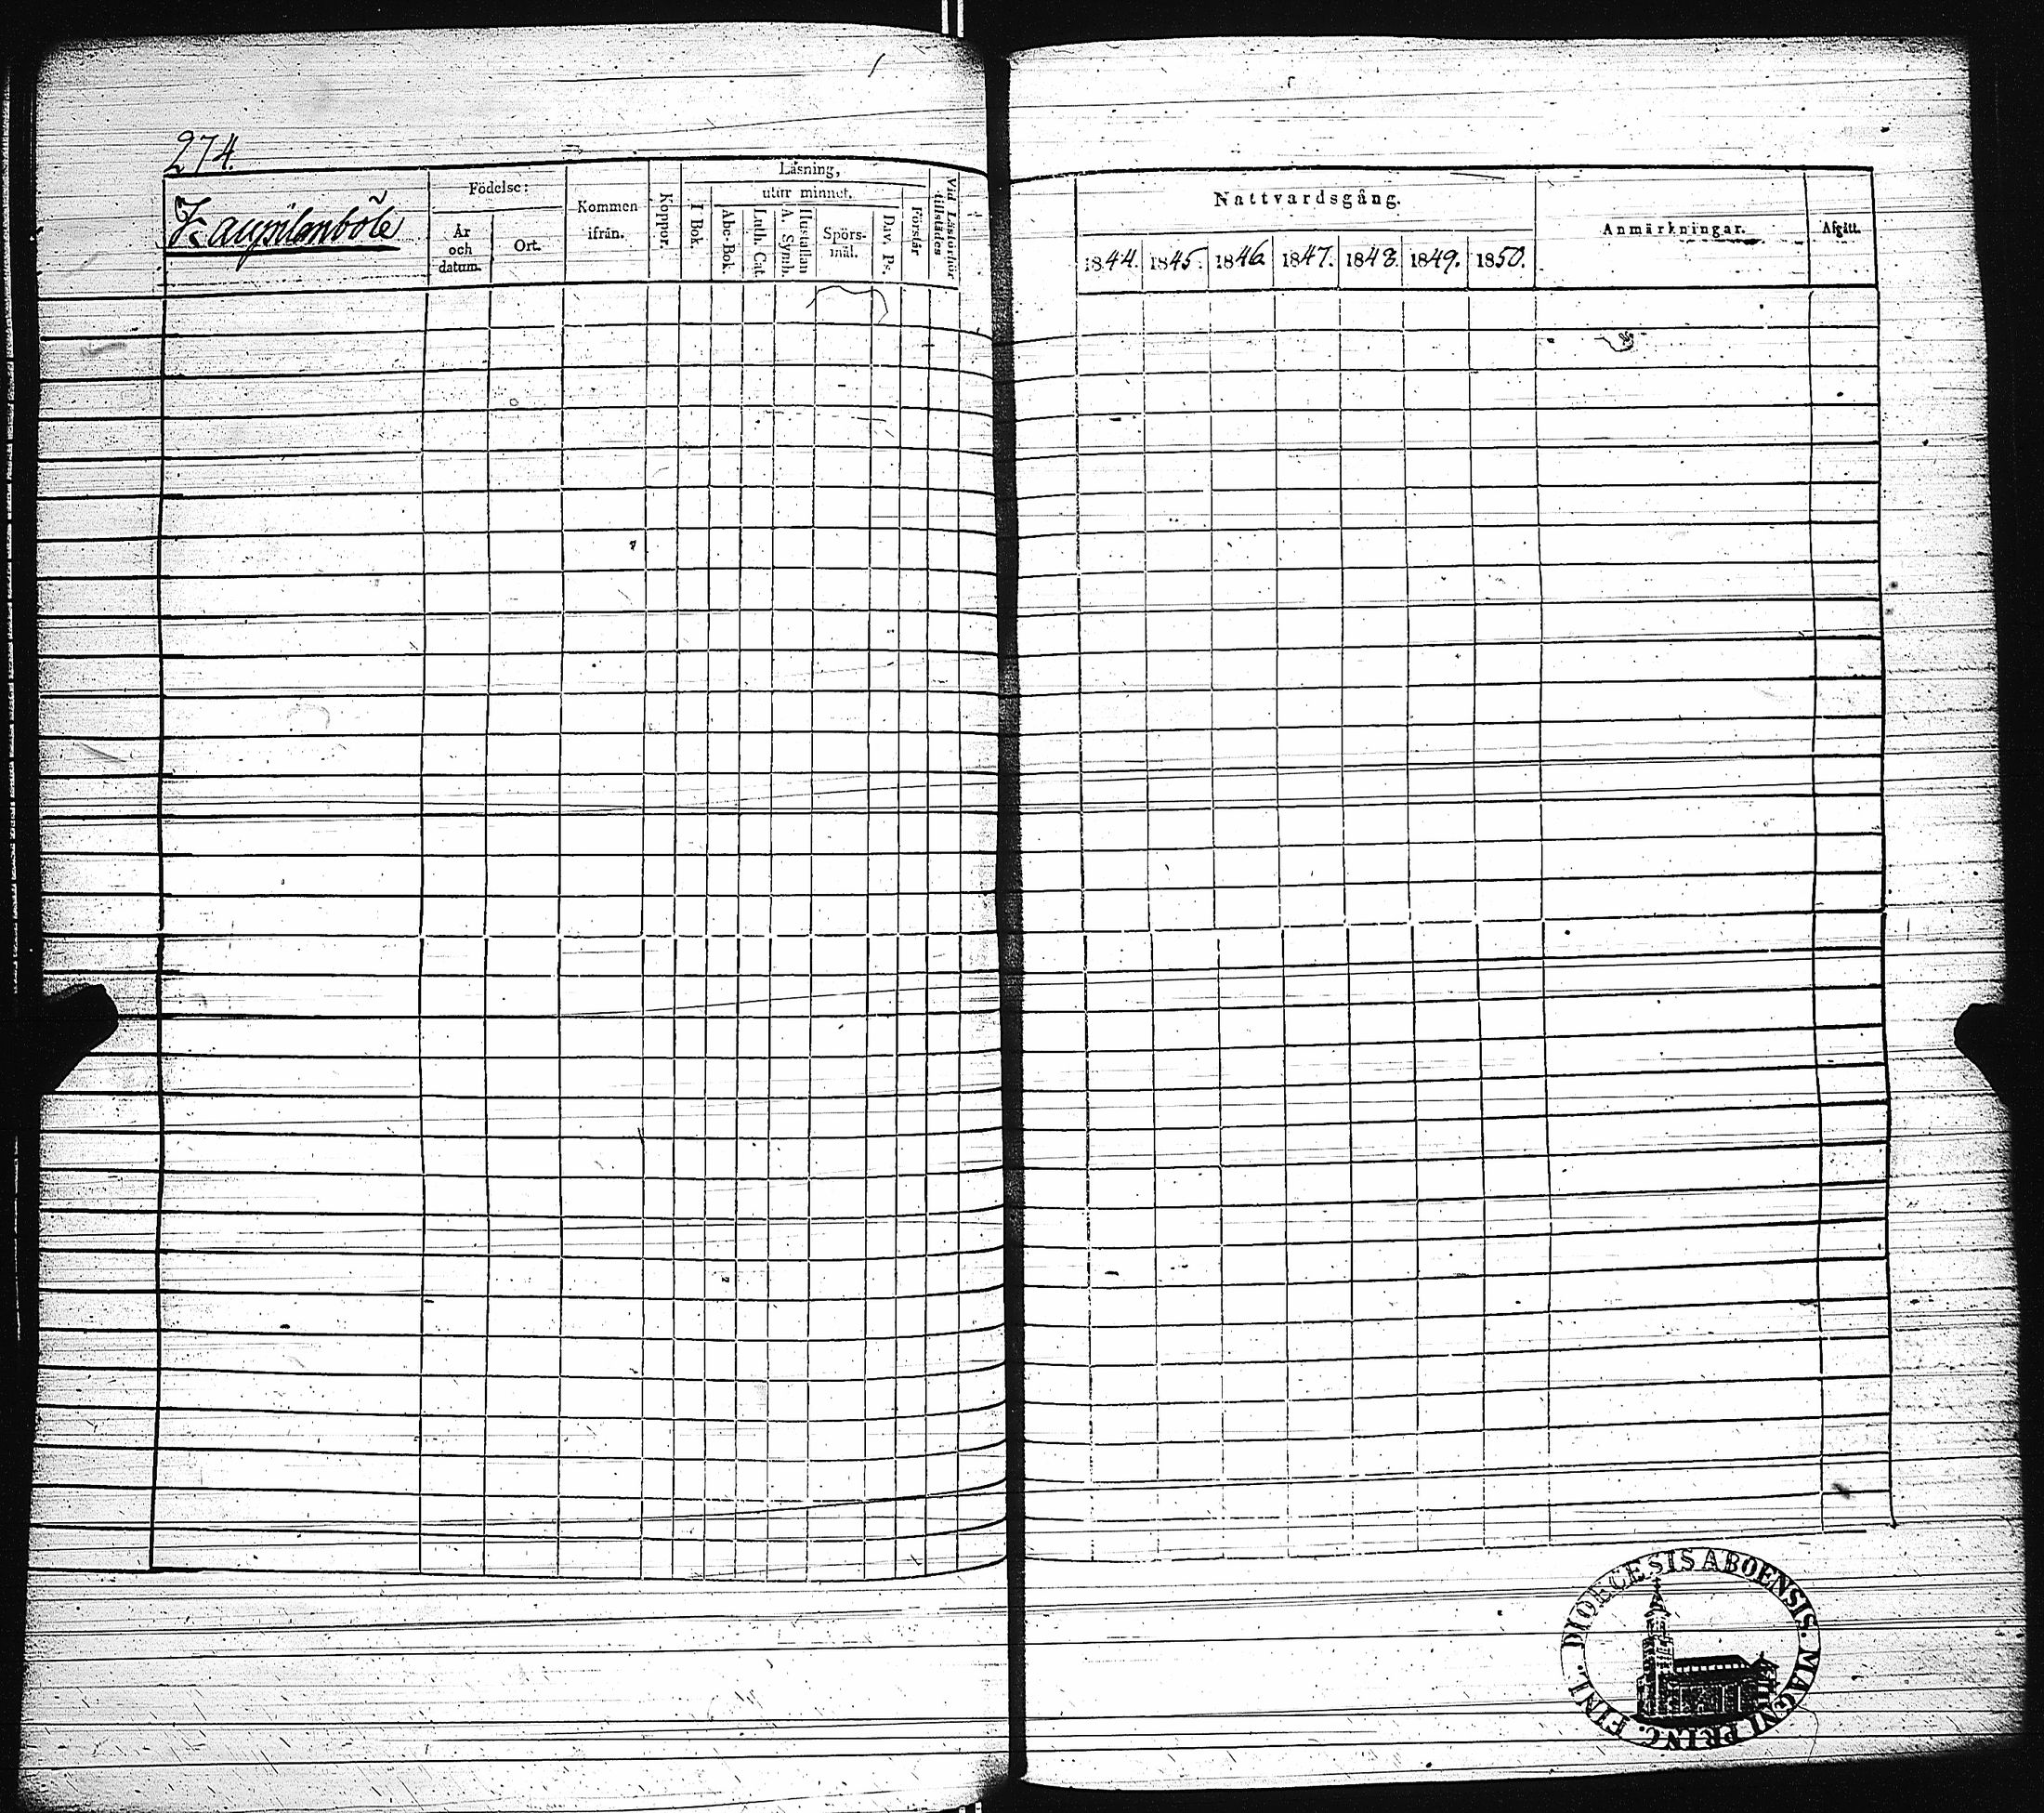 274.
Kaupilanböle
Födelse:
År och datum.
Ort.
Kommen ifrån.
Koppor.
Läsning,
I Bok.
utur minnet.
Abc-Bok.
Luth. Cat.
Hustaflan A. Symb.
Spörs-mål.
Dav. Ps.
Förstår
Vid Läsförhör tillstädes
Nattvardsgång.
1844. 1845. 1846. 1847. 1848. 1849. 1850.
Anmärkningar.
Afgått.
DIOECESIS ABOENSIS. MAGNI PRINC. FINL.